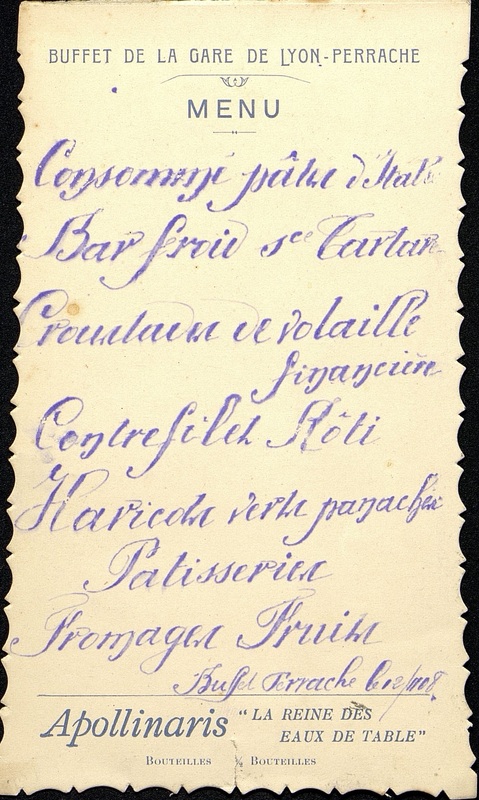 BUFFET DE LA GARE DE LYON-PERRACHE
MENU
Consommé pâtes d'Italie
Bar froid sce Tartare
Croustades de volaille
financière
Contrefilet Rôti
Haricots verts panachés
Patisseries
Fromages Fruits
Perrache le
Apollinaris "LA REINE DES
EAUX DE TABLE"
BOUTEILLES BOUTEILLES